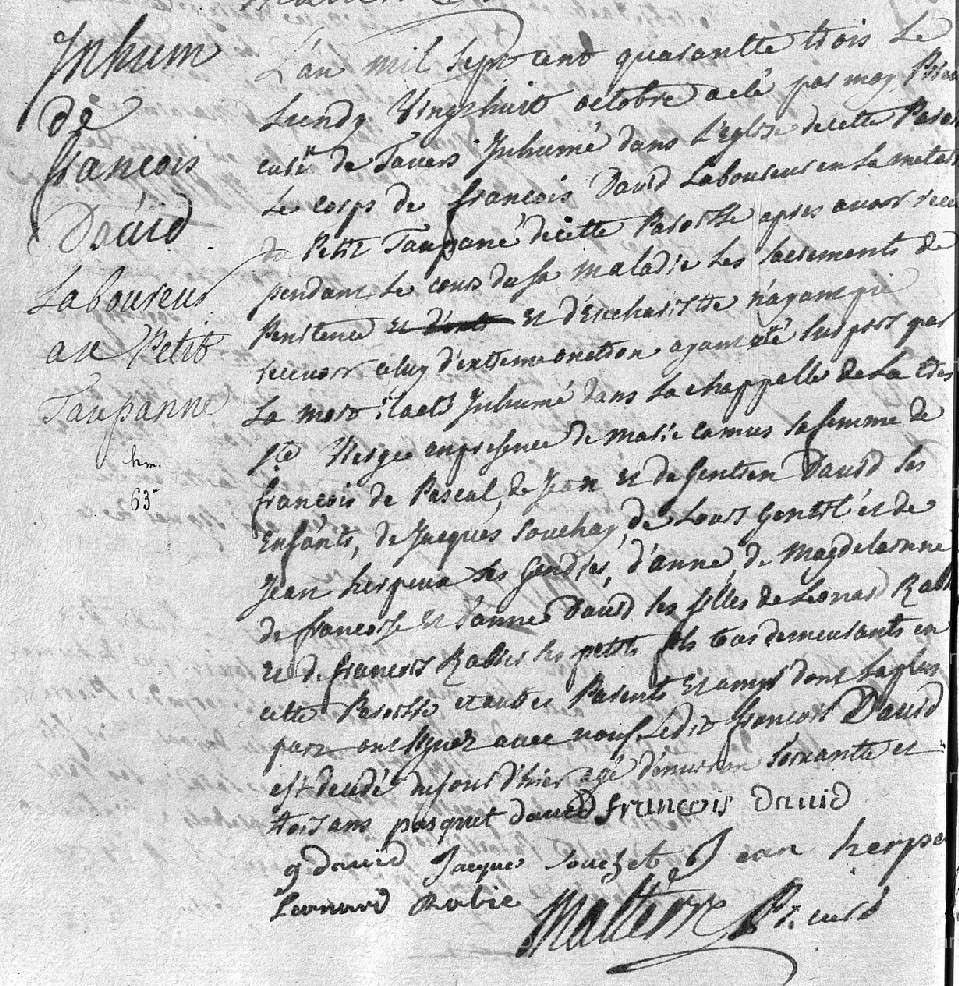 Inhum
de
françois
David
Laboureur
au Petit
Taupanne
hm.
63
L'an mil sept cent quarantte trois Le
Lundy Vingthuit octobre a eté par moy
curé de Tavers Inhumé dans L'eglise de cette
Le corps de françois David Laboureur en La
de Petit Taupane de cette Paroisse apres avoir
pendant le cours de sa maladie Les sacrements de
Penitence et et d'Eucharistie n'ayant pû
recevoir celuy d'extreme onction ayant eté surpris par
La mort il a eté Inhumé dans La chappelle de La
Ste Vierge en presence de marie camus sa femme de
françois de Pascal, de Jean et de Gentien David ses
Enfants, de Jacques Souchay, de Louis Gentil et de
Jean herpeux ses Gendres, d'anne, de Magdelainne
de françoise et Janne David ses filles de Leonard
et de francois Rabier ses petits fils tous demeurants en
cette Paroisse et autres Parents et amys dont La plus
part ont signez avec nous, Ledit françois David
est decedé du jour d'hier agé d'environ soixante et
trois ans pasquet david françois david
g david Jacque Souchet Jean
Leonard Robie
curé